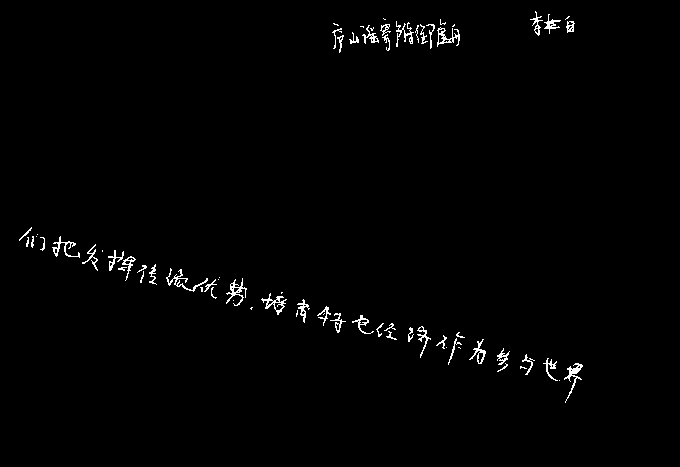 庐山谣寄卢侍御虚舟 李白
们把发挥传统优势,培育特色经济作为参与世界